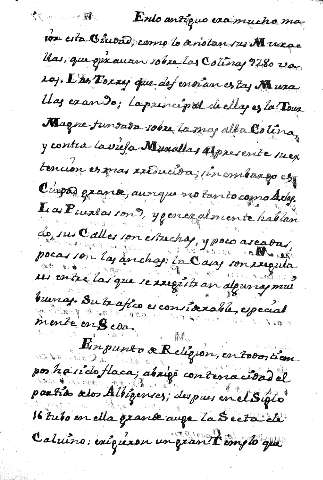 En lo antiguo era mucho ma-
ior esta Ciudad, como lo anotan sus Mura-
llas, que giravan sobre las Colinas 4780 va-
ras. Las Torres que defendian estas Mura-
llas eran do; la principal de ellas es la Tour
Magne fundada sobre la mas alta Colina,
y contra la vieja Muralla: al presente su ex-
tencion es mas rreducida; sin embargo es
Ciudad grande, aunque no tanto como
Las Puertas son y generalmente hablan-
do, sus Calles son estrechas, y poco aseadas,
pocas son las anchas: las Casas son rregula-
res entre las que se rregistran algunas mui
buenas. Su trafico es considerable, especial-
mente en Seda.
En punto de Religion, en todos tiem-
pos ha sido flaca; abrigó con tenacidad el
partido de los Albigenses; despues en el Siglo
16 tubo en ella grande auge la Secta de
Calvino; erigieron un gran Templo que